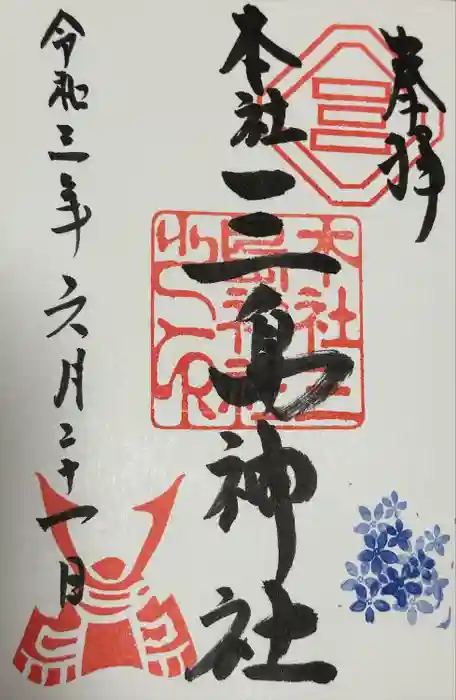 奉拝
本社三島神社
令和三年六月二十一日
本社三
島神社
之印